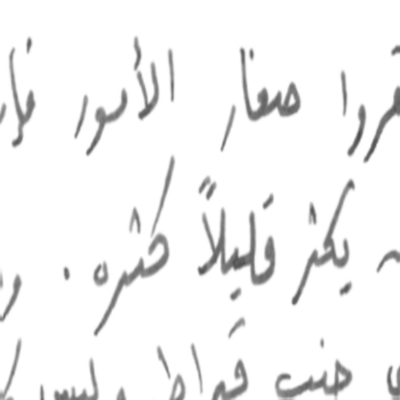 قروا صغار الأمور فإ
يكثر قليلاً كثره . و
جنب قيراط وليس